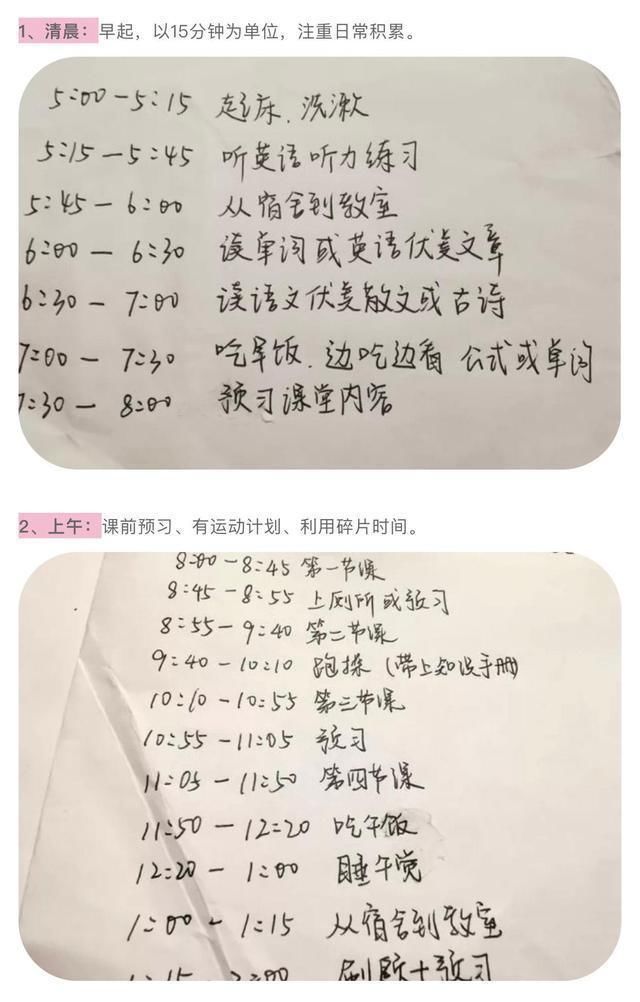 1、清晨：早起，以15分钟为单位，注重日常积累。
5:00 - 5:15 起床、洗漱
5:15 - 5:45 听英语听力练习
5:45 - 6:00 从宿舍到教室
6:00 - 6:30 读单词或英语优美文章
6:30 - 7:00 读语文优美散文或古诗
7:00 - 7:30 吃早饭、边吃边看 公式或单词
7:30 - 8:00 预习课堂内容
2、上午：课前预习、有运动计划、利用碎片时间。
8:00 - 8:45 第一节课
8:45 - 8:55 上厕所或预习
8:55 - 9:40 第二节课
9:40 - 10:10 跑操（带上知识手册）
10:10 - 10:55 第三节课
10:55 - 11:05 预习
11:05 - 11:50 第四节课
11:50 - 12:20 吃午饭
12:20 - 1:00 睡午觉
1:00 - 1:15 从宿舍到教室
1:15 - 2:00 刷题+预习